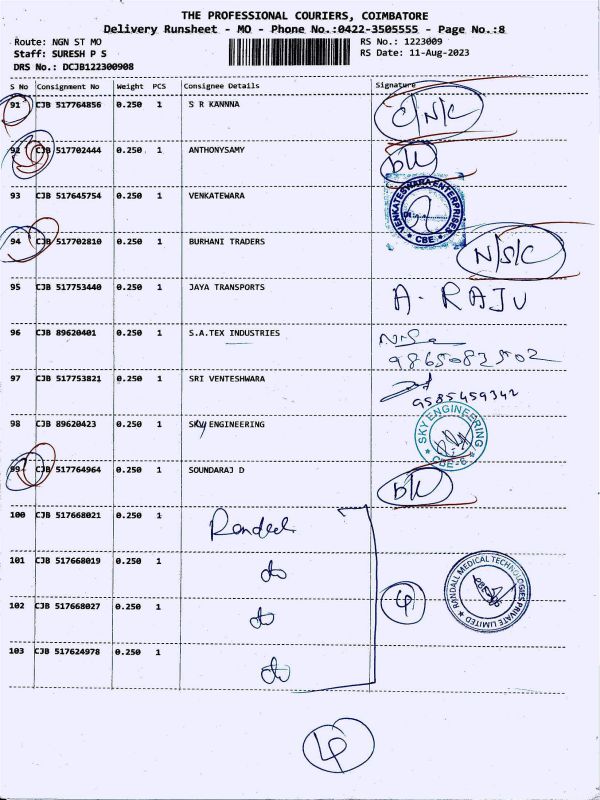 THE PROFESSIONAL COURIERS, COIMBATORE
Delivery Runsheet - MO - Phone No.:0422-3505555 - Page No.:8
Route: NGN ST MO RS No.: 1223009
Staff: SURESH P S RS Date: 11-Aug-2023
DRS No.: DCJB122300908
S No Consignment No Weight PCS Consignee Details Signature
91 CJB 517764856 0.250 1 S R KANNNA C/N/C
92 CJB 517702444 0.250 1 ANTHONYSAMY
93 CJB 517645754 0.250 1 VENKATEWARA VENKATESWARA ENTERPRISES * CBE *
94 CJB 517702810 0.250 1 BURHANI TRADERS N/S/C
95 CJB 517753440 0.250 1 JAYA TRANSPORTS A. RAJU
96 CJB 89620401 0.250 1 S.A.TEX INDUSTRIES
9865082502
97 CJB 517753821 0.250 1 SRI VENTESHWARA
9585459342
98 CJB 89620423 0.250 1 SKY ENGINEERING SKY ENGINEERING * CBE-6 *
99 CJB 517764964 0.250 1 SOUNDARAJ D
100 CJB 517668021 0.250 1
101 CJB 517668019 0.250 1 do
102 CJB 517668027 0.250 1 do 4 RANDALL MEDICAL TECHNOLOGIES PRIVATE LIMITED *
103 CJB 517624978 0.250 1 do